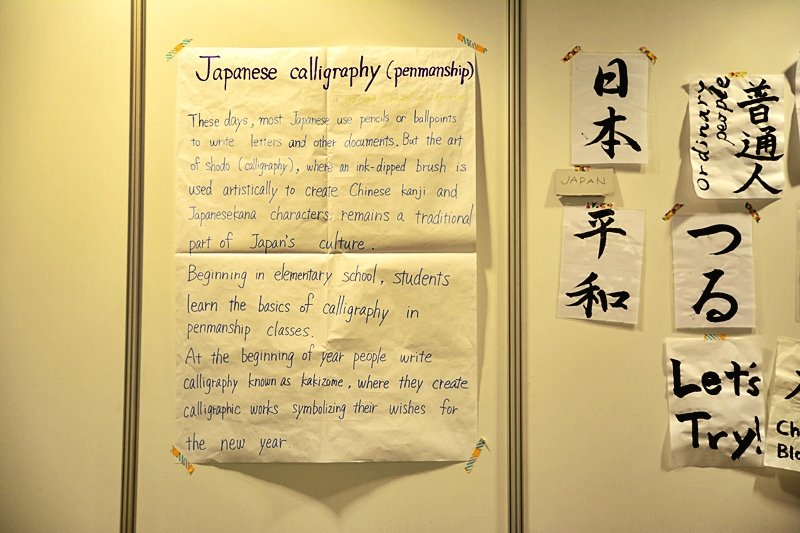 Japanese calligraphy (penmanship)
These days, most Japanese use pencils or ballpoints
to write letters and other documents. But the art
of shodo (calligraphy), where an ink-dipped brush is
used artistically to create Chinese kanji and
Japanesekana characters, remains a traditional
part of Japan's culture.
Beginning in elementary school, students
learn the basics of calligraphy in
penmanship classes.
At the beginning of year people write
calligraphy known as kakizome, where they create
calligraphic works symbolizing their wishes for
the new year.
日本
JAPAN
平和
普通人
ordinary
people
つる
Let's
Try!